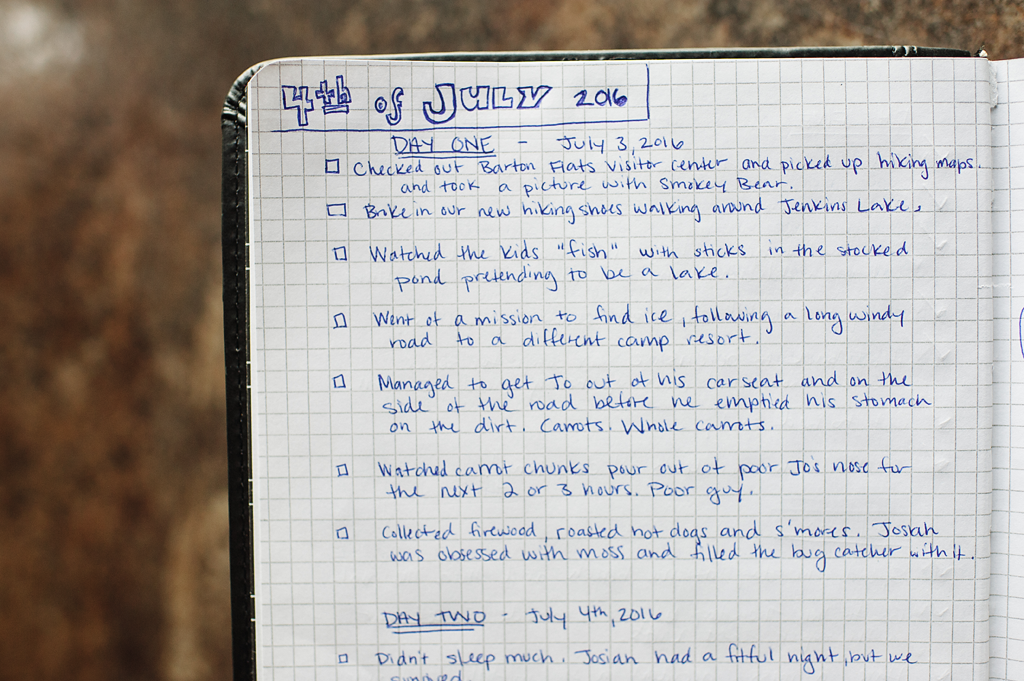 4th of JULY 2016
DAY ONE - July 3, 2016
Checked out Barton Flats Visitor center and picked up hiking maps.
and took a picture with Smokey Bear.
Broke in our new hiking shoes walking around Jenkins Lake,
Watched the kids "fish" with sticks in the stocked
pond pretending to be a lake.
Went of a mission to find ice, following a long windy
road to a different camp resort.
Managed to get Jo out of his car seat and on the
side of the road before he emptied his stomach
on the dirt. Carrots. Whole carrots.
Watched carrot chunks pour out of poor Jo's nose for
the next 2 or 3 hours. Poor guy.
Collected firewood, roasted hot dogs and s'mores. Josiah
was obsessed with moss and filled the bug catcher with it.
DAY TWO - July 4th, 2016
Didn't sleep much. Josiah had a fitful night, but we